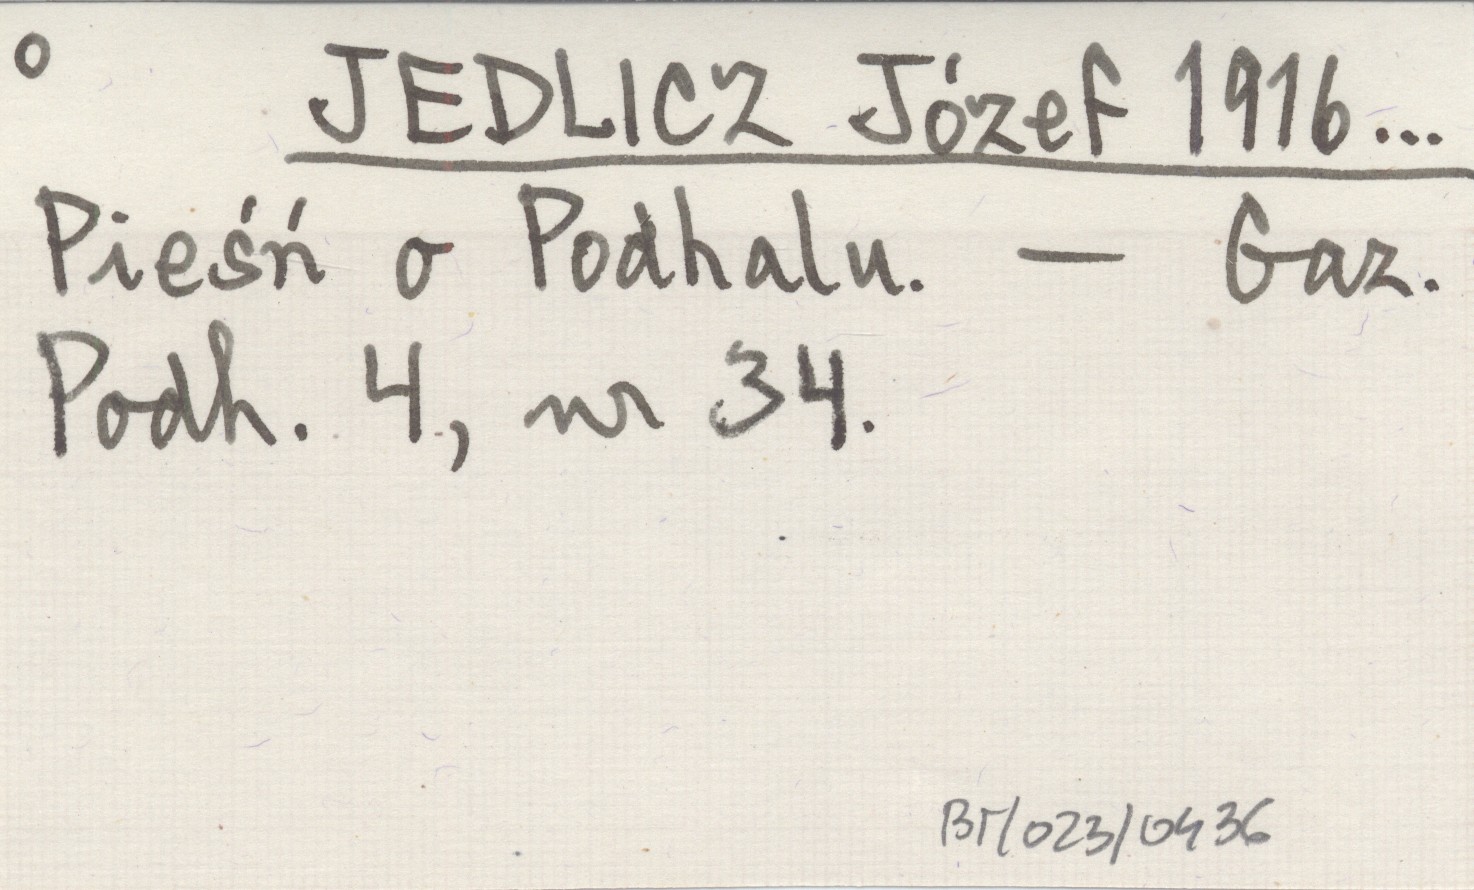 o JEDLICZ Józef 1916...
Pieśń o Podhalu. — Gaz.
Podh. 4, nr 34.
BT/023/0436